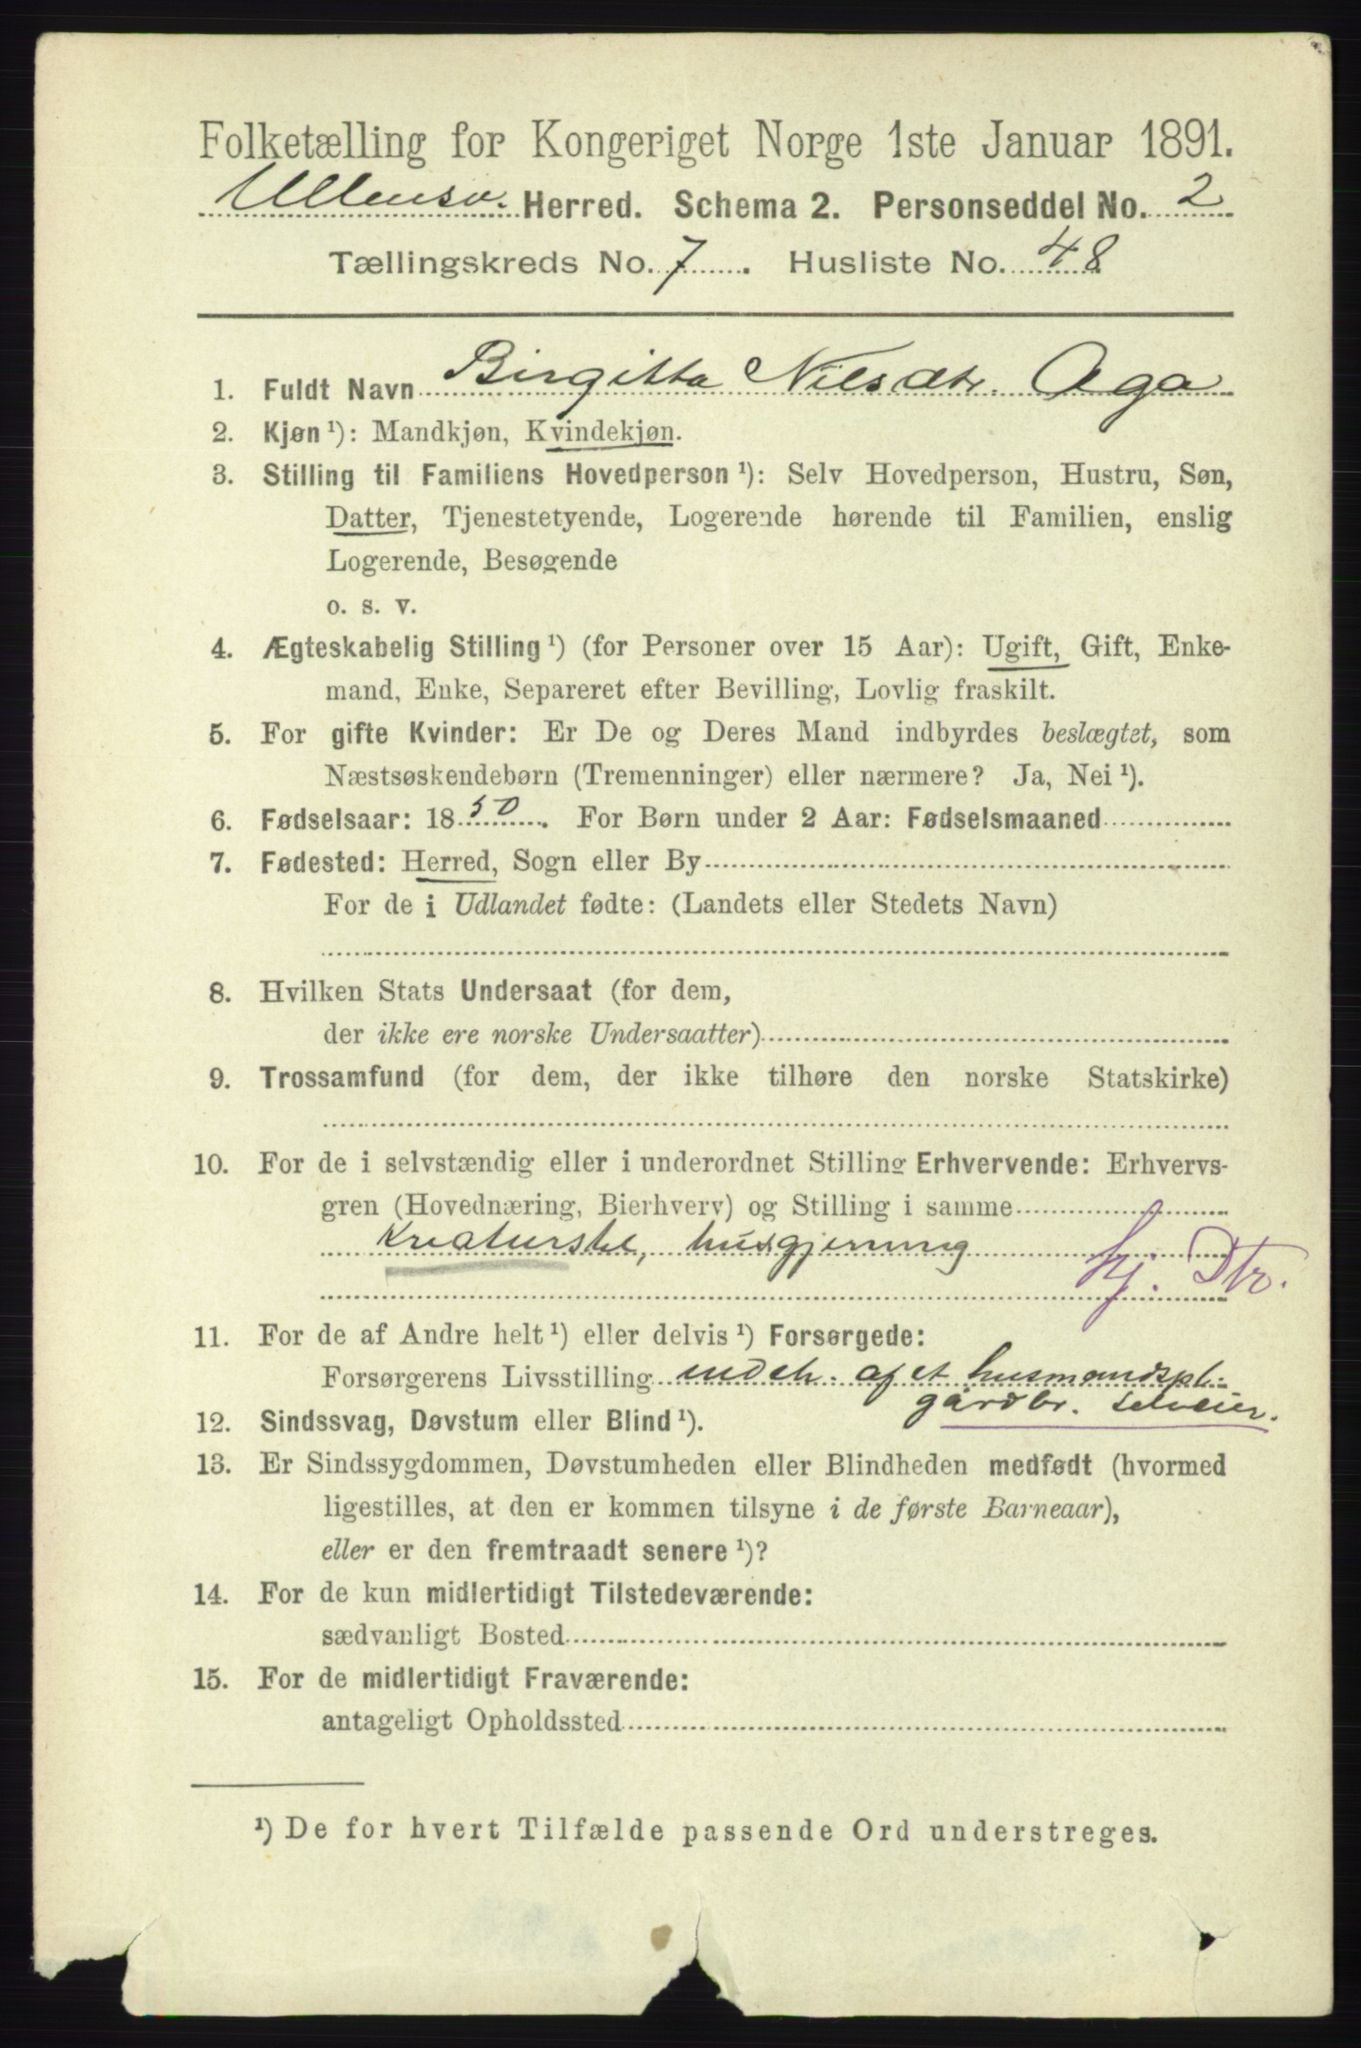 Folketælling for Kongeriget Norge 1ste Januar 1891.
Ullensv. Herred. Schema 2. Personseddel No. 2
Tællingskreds No. 7. Husliste No. 48
1. Fuldt Navn Birgitta Nilsdtr. Aga
2. Kjøn ¹): Mandkjøn, Kvindekjøn.
3. Stilling til Familiens Hovedperson ¹): Selv Hovedperson, Hustru, Søn,
Datter, Tjenestetyende, Logerende hørende til Familien, enslig
Logerende, Besøgende
o. s. v.
4. Ægteskabelig Stilling ¹) (for Personer over 15 Aar): Ugift, Gift, Enke-
mand, Enke, Separeret efter Bevilling, Lovlig fraskilt.
5. For gifte Kvinder: Er De og Deres Mand indbyrdes beslægtet, som
Næstsøskendebørn (Tremenninger) eller nærmere? Ja, Nei ¹).
6. Fødselsaar: 1850. For Børn under 2 Aar: Fødselsmaaned
7. Fødested: Herred, Sogn eller By
For de i Udlandet fødte: (Landets eller Stedets Navn)
8. Hvilken Stats Undersaat (for dem,
der ikke ere norske Undersaatter)
9. Trossamfund (for dem, der ikke tilhøre den norske Statskirke)
10. For de i selvstændig eller i underordnet Stilling Erhvervende: Erhvervs-
gren (Hovednæring, Bierhverv) og Stilling i samme
Kreaturstel, husgjerning
hj. Dtr.
11. For de af Andre helt ¹) eller delvis ¹) Forsørgede:
Forsørgerens Livsstilling indeh. af et husmandspl.
gårdbr. selveier.
12. Sindssvag, Døvstum eller Blind ¹).
13. Er Sindssygdommen, Døvstumheden eller Blindheden medfødt (hvormed
ligestilles, at den er kommen tilsyne i de første Barneaar),
eller er den fremtraadt senere ¹)?
14. For de kun midlertidigt Tilstedeværende:
sædvanligt Bosted
15. For de midlertidigt Fraværende:
antageligt Opholdssted
¹) De for hvert Tilfælde passende Ord understreges.